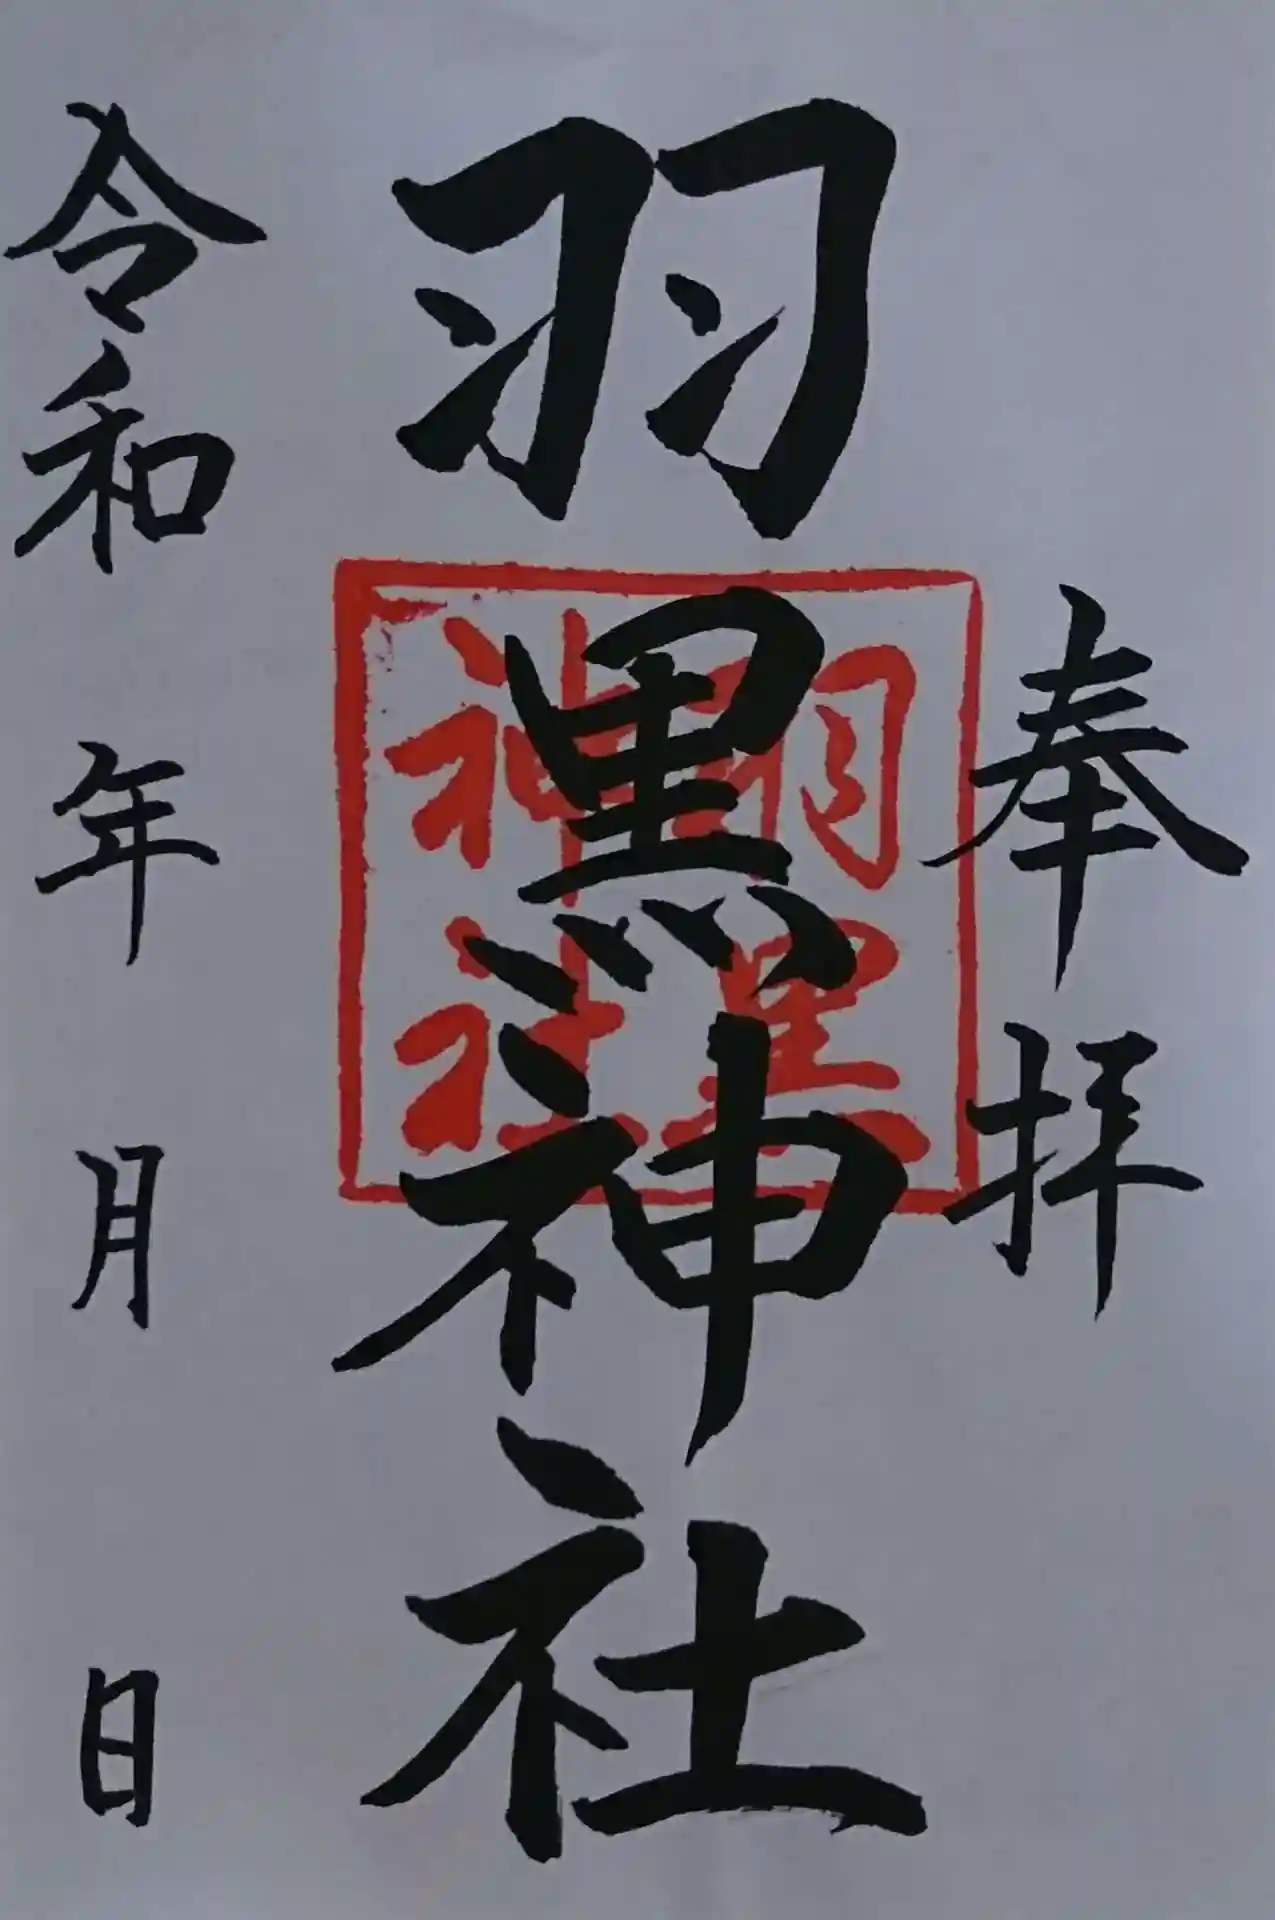 奉拝
羽黒神社
羽黒
神社
令和 年 月 日